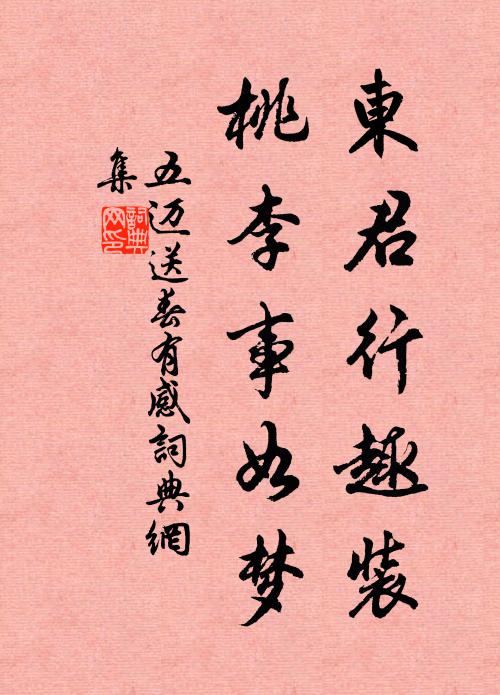 東君行趣裝
桃李事如梦
五迈送春有感詞典網
集
詞典网印